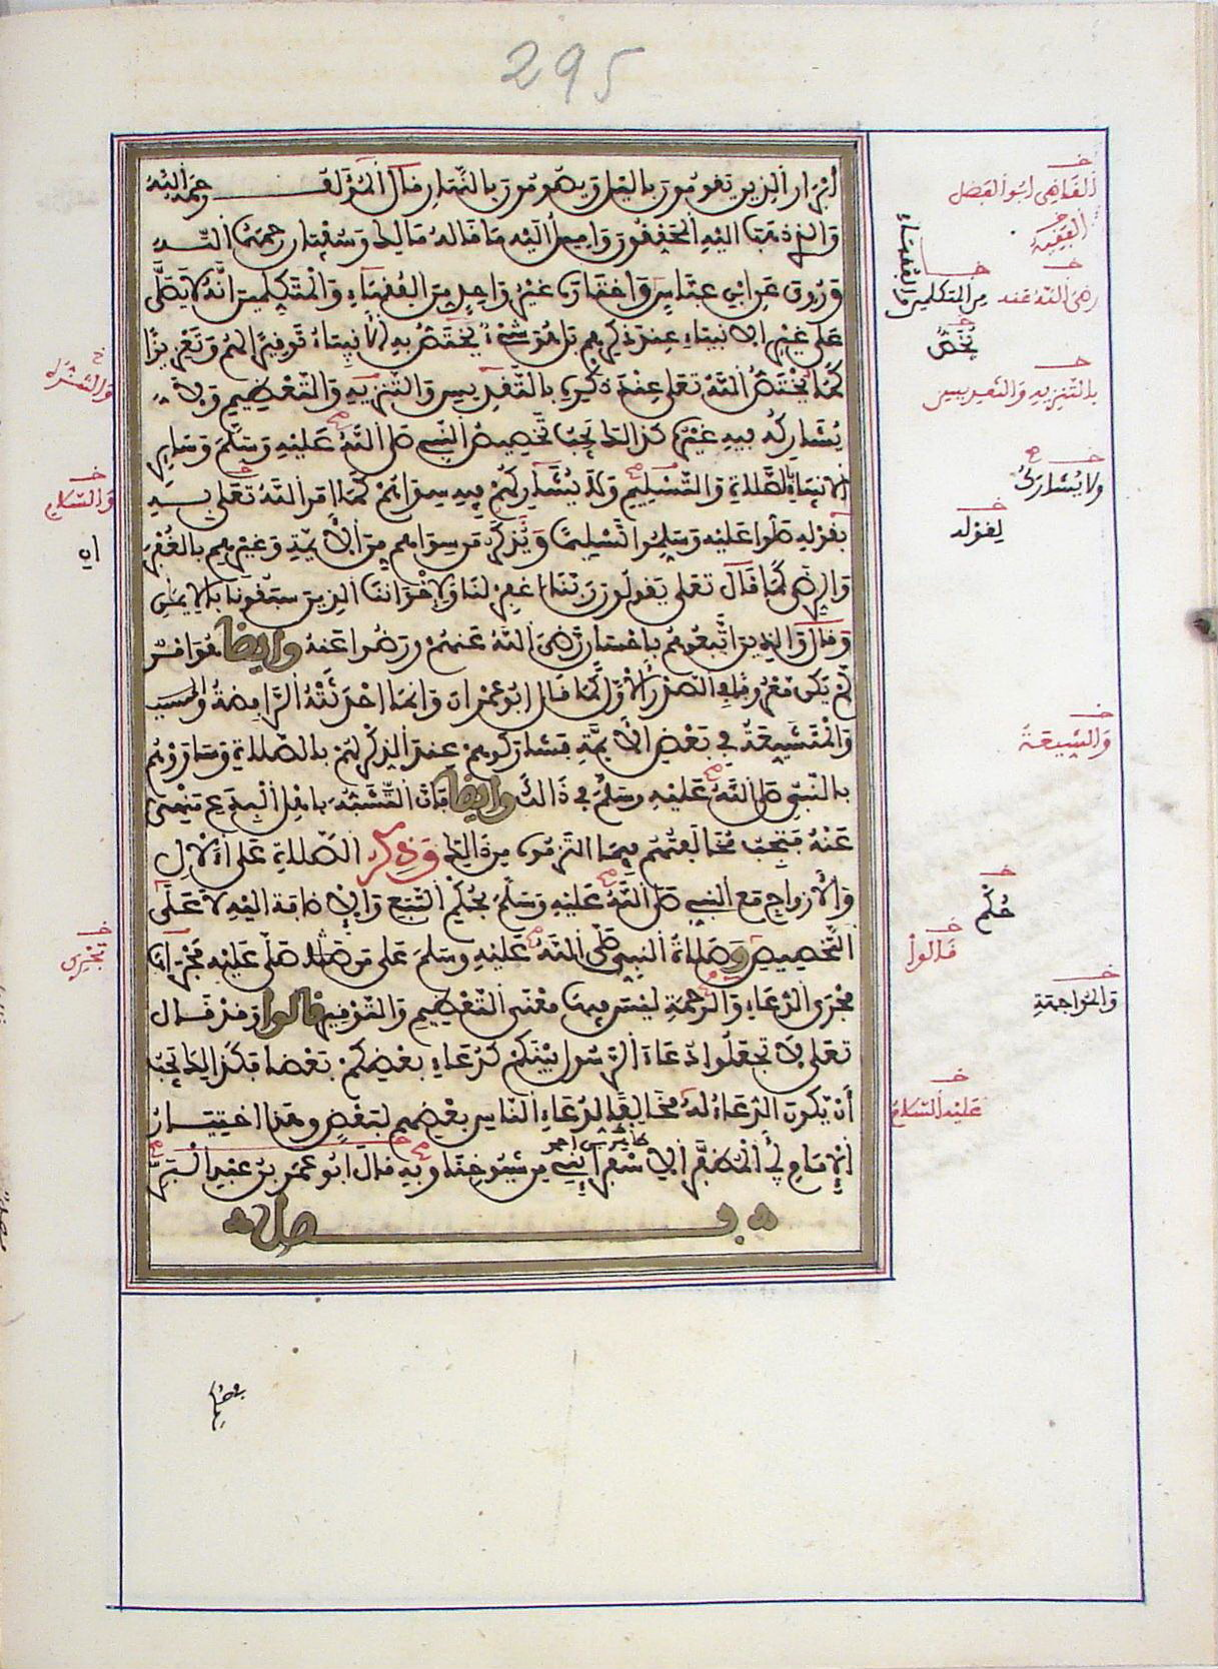 295
أبرار الذين يقومون بالليل ويصومون بالنهار قال المؤلف رحمه الله
والذي ذهب اليه المحققون واميل اليه ما قاله مالك وسفيان رحمهما الله
وروي عن ابن عباس واختاره غير واحد من الفقهاء والمتكلمين انه لا يصلى
على غير الانبياء عند ذكرهم بل هو شيء يختص به الانبياء توقيرا لهم وتعزيزا
كما يختص الله تعالى عند ذكره بالتقديس والتنزيه والتعظيم ولا
يشاركه فيه غيره كذلك يجب تخصيص النبي صلى الله عليه وسلم وسائر
الانبياء بالصلاة والتسليم ولا يشاركهم فيه سواهم كما امر الله تعالى به
بقوله صلوا عليه وسلموا تسليما ويذكر من سواهم من الأئمة وغيرهم بالغفران
والرضى كما قال تعالى يقولون ربنا اغفر لنا ولإخواننا الذين سبقونا بالإيمان
وقال والذين اتبعوهم بإحسان رضي الله عنهم ورضوا عنه وايضا فهو امر
لم يكن معروفا في الصدر الأول كما قال ابو عمران وانما احدثته الرافضة
والمتشيعة في بعض الأئمة فشاركوهم عند الذكر لهم بالصلاة وساووهم
بالنبي صلى الله عليه وسلم في ذلك وايضا فإن التشبه بأهل البدع منهي
عنه فتجب مخالفتهم فيما التزموه من ذلك وذكر الصلاة على الآل
والأزواج مع النبي صلى الله عليه وسلم بحكم التبع والإضافة إليه لا على
التخصيص وصلاة النبي صلى الله عليه وسلم على من صلى عليه مجراها
مجرى الدعاء والرحمة ليس فيها معنى التعظيم والتوقير قالوا وقد قال
تعالى لا تجعلوا دعاء الرسول بينكم كدعاء بعضكم بعضا فكذلك يجب
أن يكون الدعاء له مخالفا لدعاء الناس بعضهم لبعض وهذا اختيار
الإمام أبي المظفر الاسفرائيني من شيوخنا وبه قال ابو عمر بن عبد البر
فصل
القاضي ابو الفضل
الفقيه
رضي الله عنه
من المتكلمين
والفقهاء
يختص
بالتنزيه والتقديس
ولا يشارك
لقوله
والشيعة
حكم
قالوا
والمراجعة
عليه السلام
والسلام
تجري